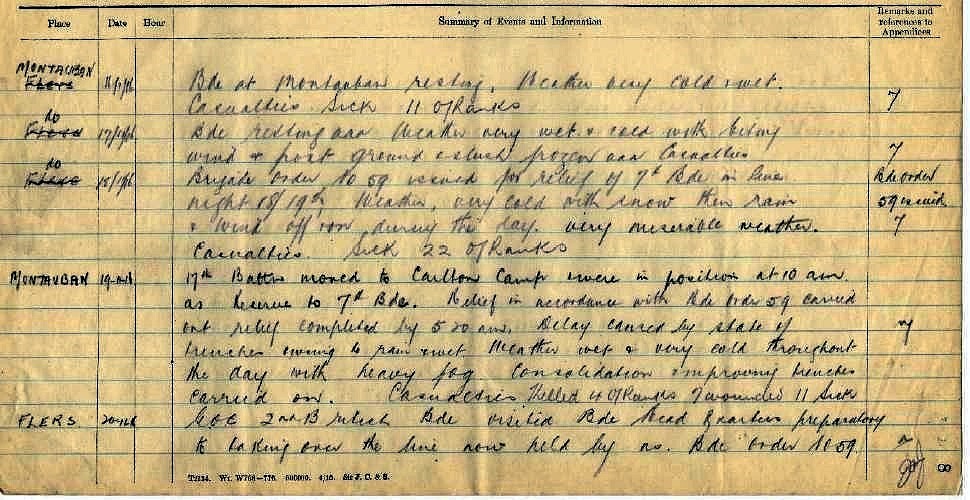 Place Date Hour Summary of Events and Information Remarks and references to Appendices
MONTAUBAN
Flers Bde at Montauban resting, Weather very cold & wet.
Casualties Sick 11 O/Ranks 7
do
Flers 17/11/16 Bde resting Weather very wet & cold with biting
wind & frost ground & slush frozen Casualties 7
do
Flers Brigade Order No 59 issued for relief of 7th Bde in line Bde order
night 18/19th Weather, very cold with snow then rain 59 issued
& wind off & on during the day. very miserable weather. 7
Casualties. Sick 22 O/Ranks
MONTAUBAN 17th Battn moved to Carlton Camp & were in position at 10 am
as Reserve to 7th Bde. Relief in accordance with Bde Order 59 carried
out relief completed by 5 20 am. Delay caused by state of 7
trenches owing to rain & wet Weather wet & very cold throughout
the day with heavy fog Consolidation & improving trenches
carried on. Casualties Killed 4 O/Ranks 7 wounded 11 Sick
FLERS GOC 2nd British Bde visited Bde Head Quarters preparatory
to taking over the line now held by us. Bde Order No 59. 7
T2134. Wt. W708—776. 500000. 4/15. Sir J. C. & S. 8